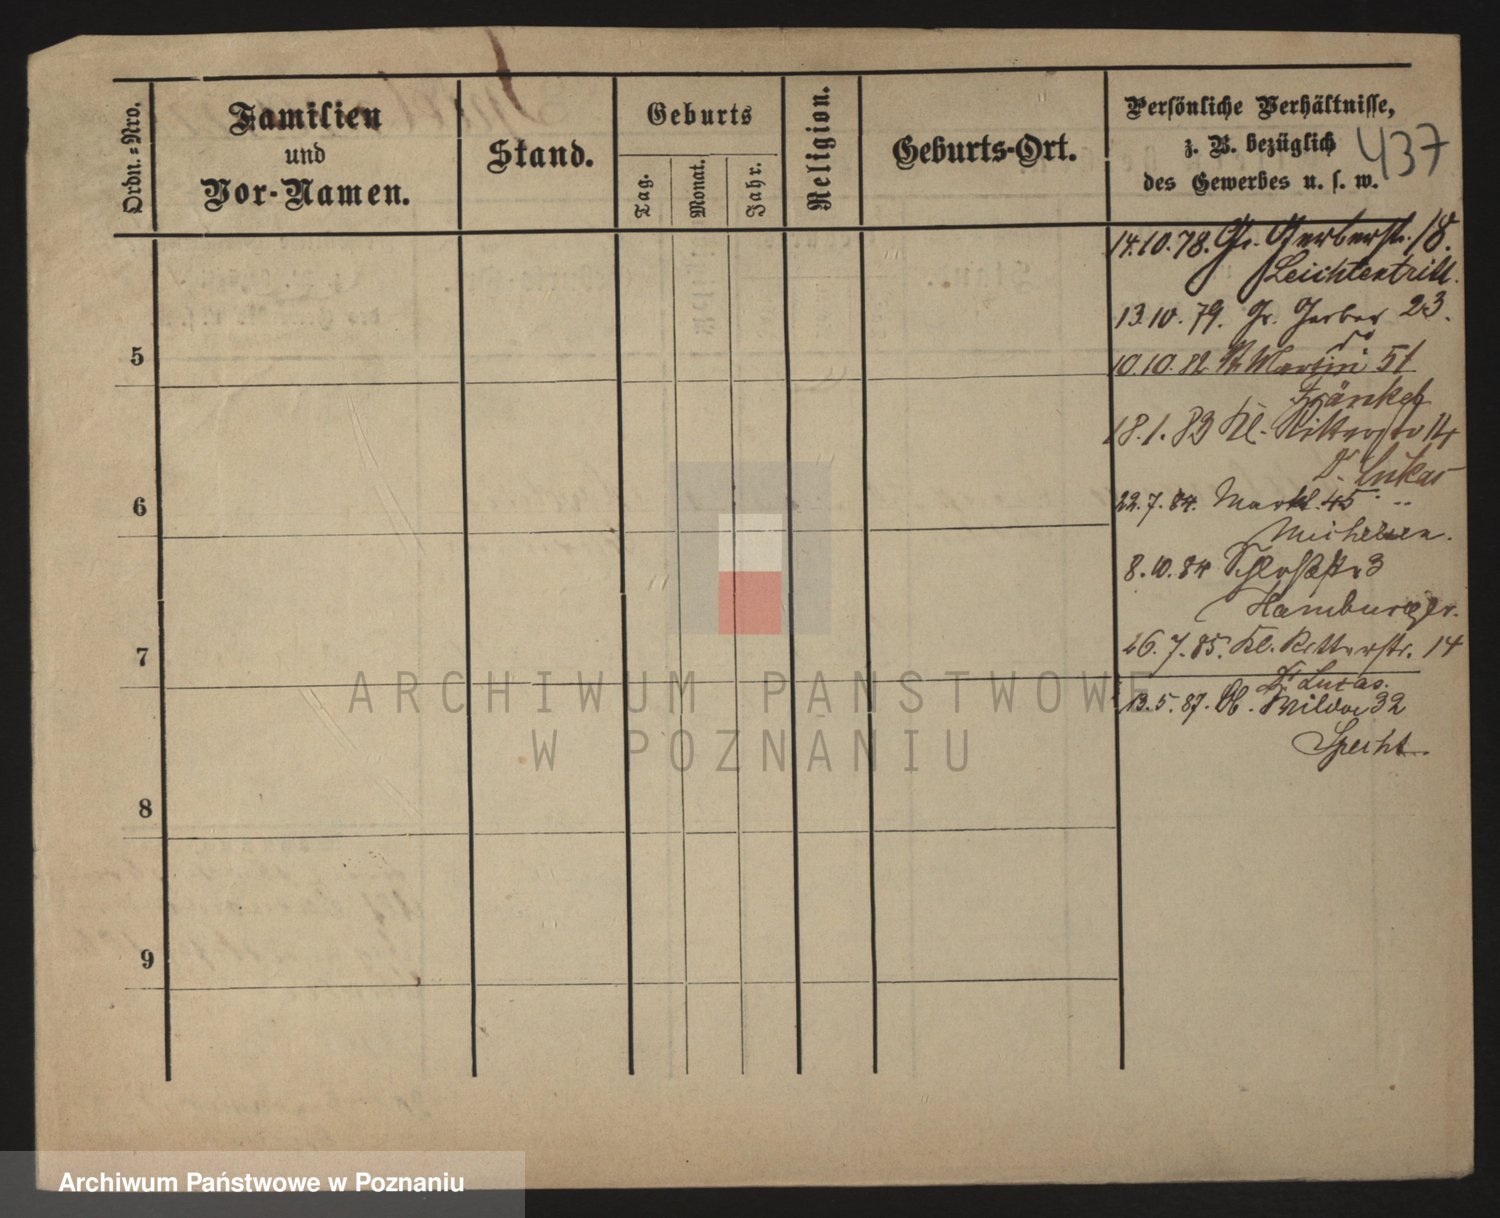 Ordn.-Nro.
Familien
und
Vor-Namen.
Stand.
Geburts
Tag.
Monat.
Jahr.
Religion.
Geburts-Ort.
Persönliche Verhältnisse,
z. B. bezüglich
des Gewerbes u. s. w.
437
14.10.78. Gr. Gerberstr. 18.
Leichtentritt.
13.10.79. Gr. Gerber 23.
do
10.10.82 St Martin 51
Fränkel
18.1.83 Kl. Ritterstr 14
Dr Lukas
22.7.84. Markt 45
Michelsen.
8.10.84 Schloßstr 3
Hamburger.
26.7.85. Kl. Ritterstr. 14
Dr Lucas.
13.5.87. Ob. Wilda 32
Specht.
5
6
7
8
9
ARCHIWUM PAŃSTWOWE
W POZNANIU
Archiwum Państwowe w Poznaniu